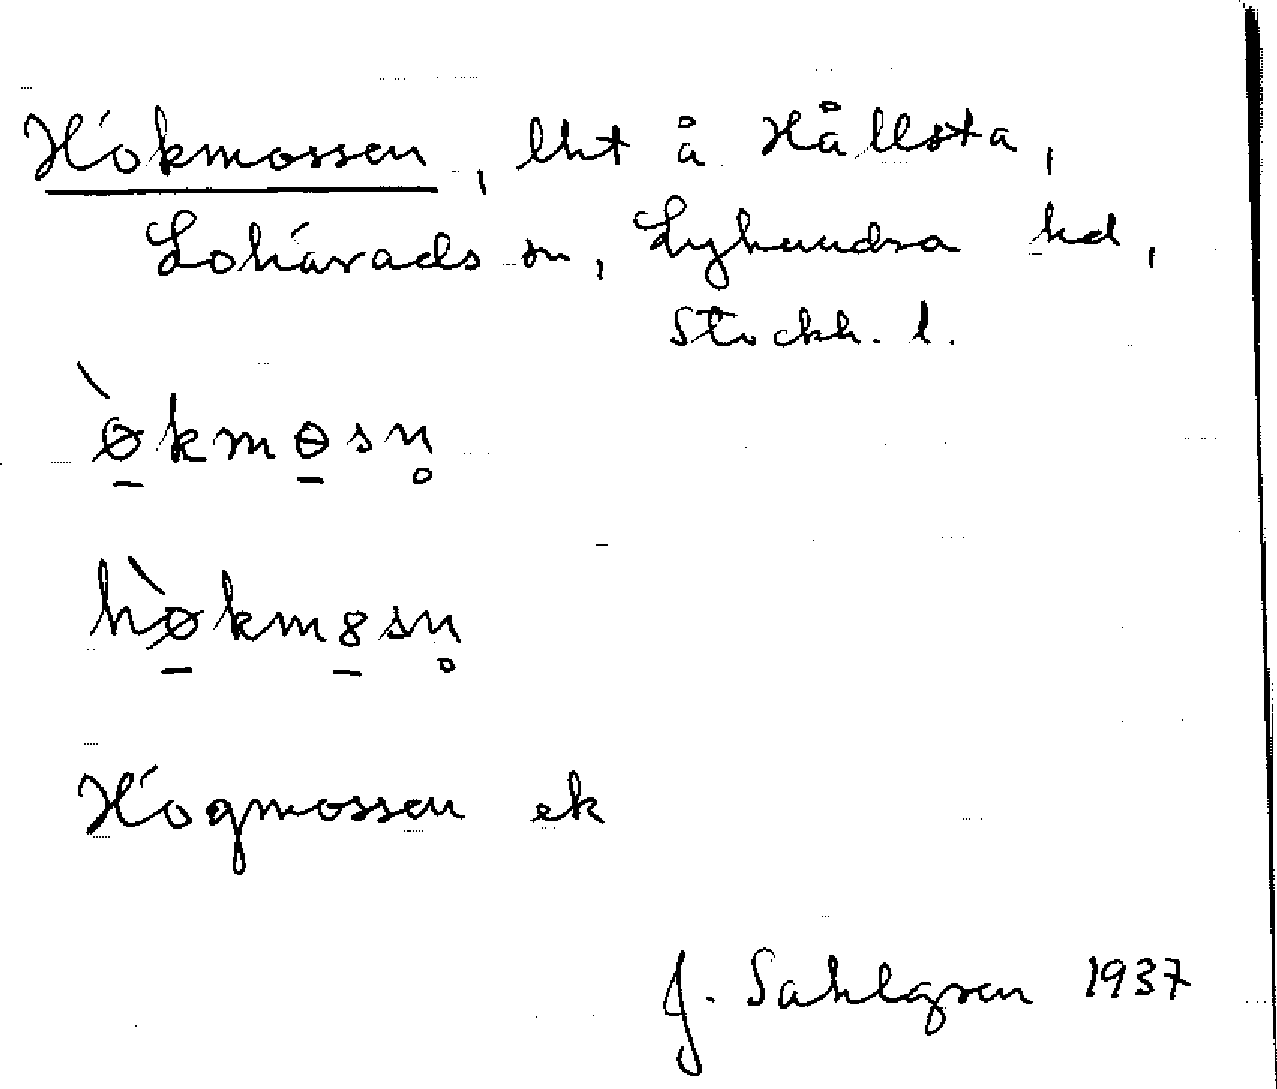 Hökmossen, lht å Hållsta,
Lohärads sn, Lyhundra hd,
Stockh. l.
ø̀kmɵsn̥
hø̀km8sn̥
Högmossen ek
J. Sahlgren 1937